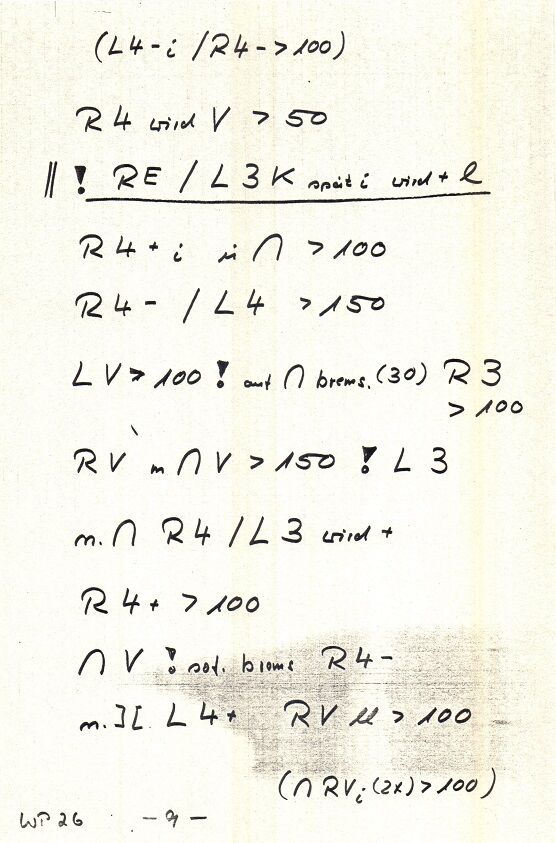 (L4-i /R4->100)
R4 wird V > 50
|| ! RE / L3K spät i wird + l
R4+i in ∩ >100
R4- / L4 >150
LV>100 ! auf ∩ brems. (30) R3
>100
RV m ∩ V >150 ! L3
n. ∩ R4 / L3 wird +
R4+ >100
∩ V ! sof. brems R4-
n. ][ L4+ RV >100
(∩ RVi (2x) >100)
WP26 -9-